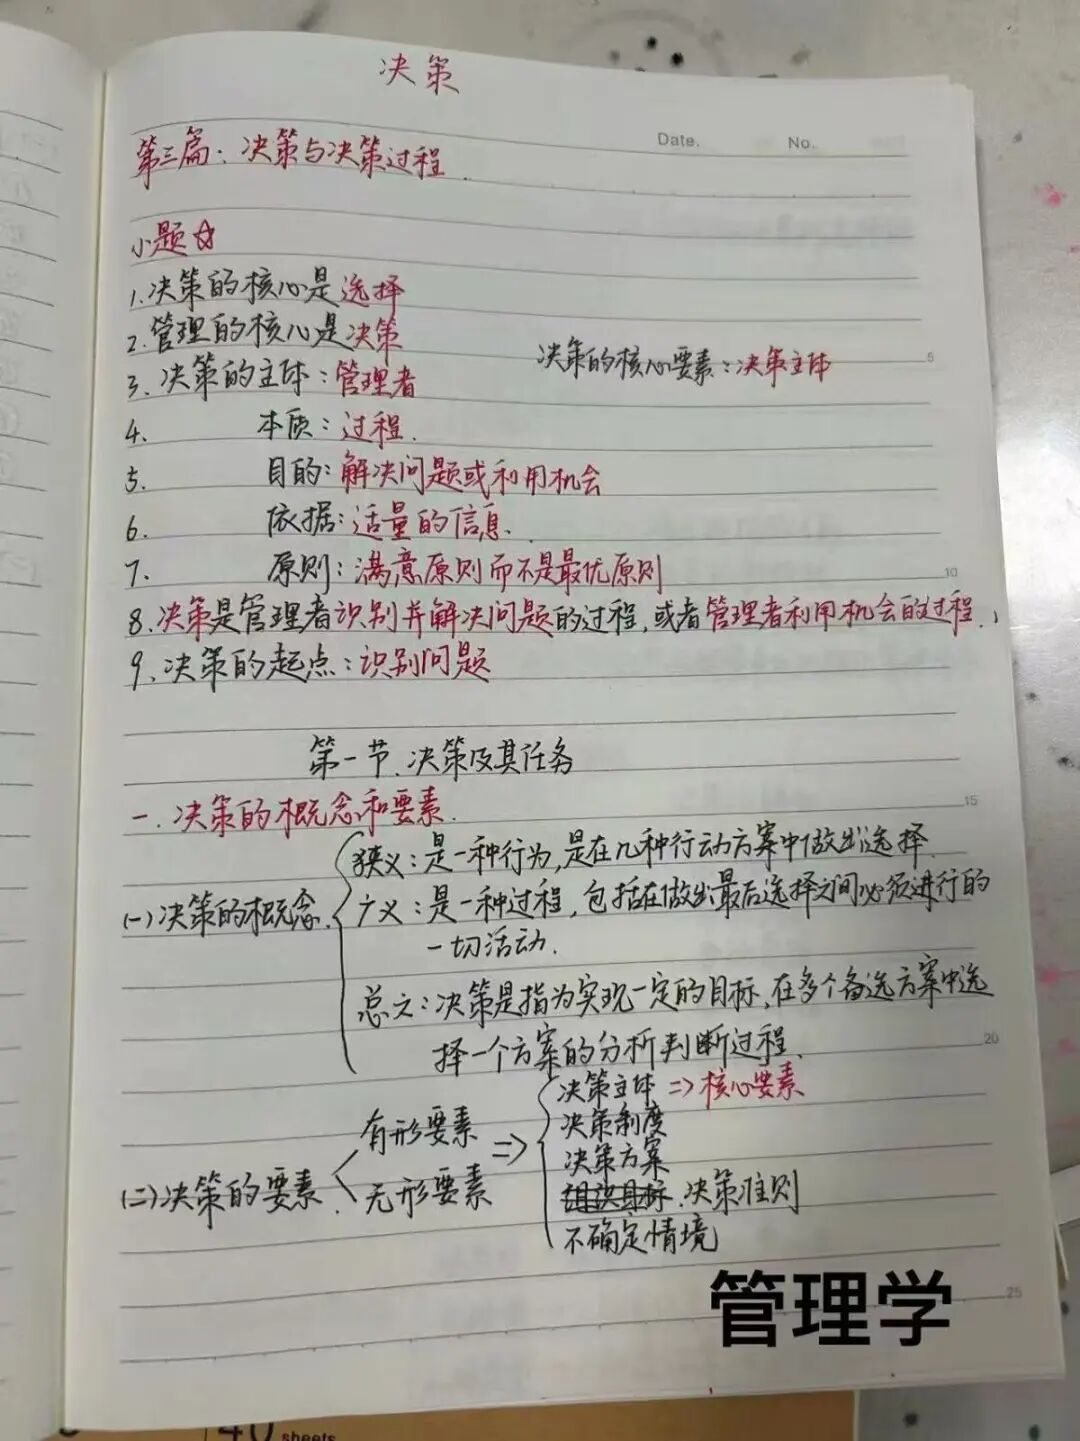 决策
Date. No.
第三篇：决策与决策过程.
小题☆
1.决策的核心是选择
2.管理的核心是决策
决策的核心要素：决策主体
3.决策的主体：管理者
4. 本质：过程.
5. 目的：解决问题或利用机会
6. 依据：适量的信息.
7. 原则：满意原则而不是最优原则
8.决策是管理者识别并解决问题的过程,或者管理者利用机会的过程.
9.决策的起点：识别问题
第一节.决策及其任务
一.决策的概念和要素.
(一)决策的概念.
狭义：是一种行为,是在几种行动方案中做出选择.
广义：是一种过程,包括在做出最后选择之间必须进行的
一切活动.
总之：决策是指为实现一定的目标,在多个备选方案中选
择一个方案的分析判断过程.
(二)决策的要素.
有形要素
无形要素
=>
决策主体 => 核心要素
决策制度
决策方案
组织目标.决策准则
不确定情境
5
10
15
20
25
管理学
40 sheets